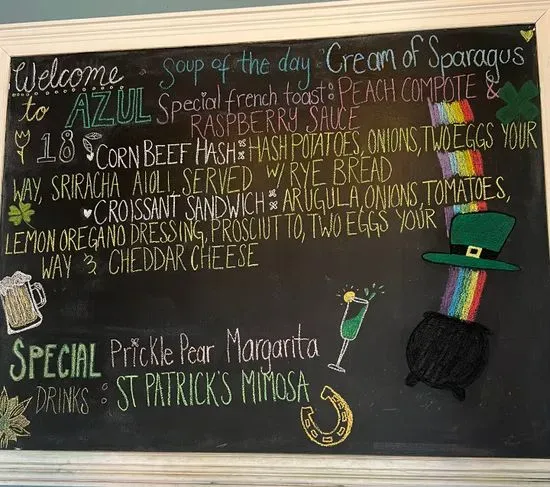 Welcome Soup of the day: Cream of Sparagus
to AZUL Special french toast: PEACH COMPOTE &
RASPBERRY SAUCE
18 CORN BEEF HASH: HASH POTATOES, ONIONS, TWO EGGS YOUR
WAY, SRIRACHA AIOLI, SERVED W/ RYE BREAD
CROISSANT SANDWICH: ARUGULA, ONIONS, TOMATOES,
LEMON OREGANO DRESSING, PROSCIUTTO, TWO EGGS YOUR
WAY & CHEDDAR CHEESE
SPECIAL Prickle Pear Margarita
DRINKS: ST PATRICK'S MIMOSA